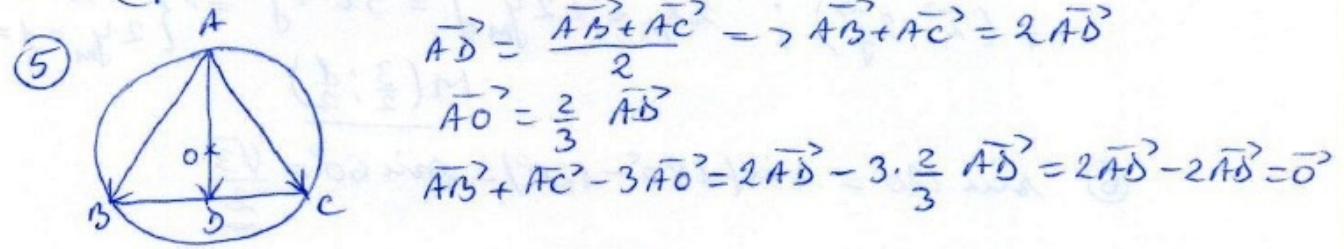 ⑤ A O B D C
\overrightarrow{AD} = \frac{\overrightarrow{AB} + \overrightarrow{AC}}{2} => \overrightarrow{AB} + \overrightarrow{AC} = 2\overrightarrow{AD}
\overrightarrow{AO} = \frac{2}{3} \overrightarrow{AD}
\overrightarrow{AB} + \overrightarrow{AC} - 3\overrightarrow{AO} = 2\overrightarrow{AD} - 3 \cdot \frac{2}{3} \overrightarrow{AD} = 2\overrightarrow{AD} - 2\overrightarrow{AD} = \overrightarrow{0}